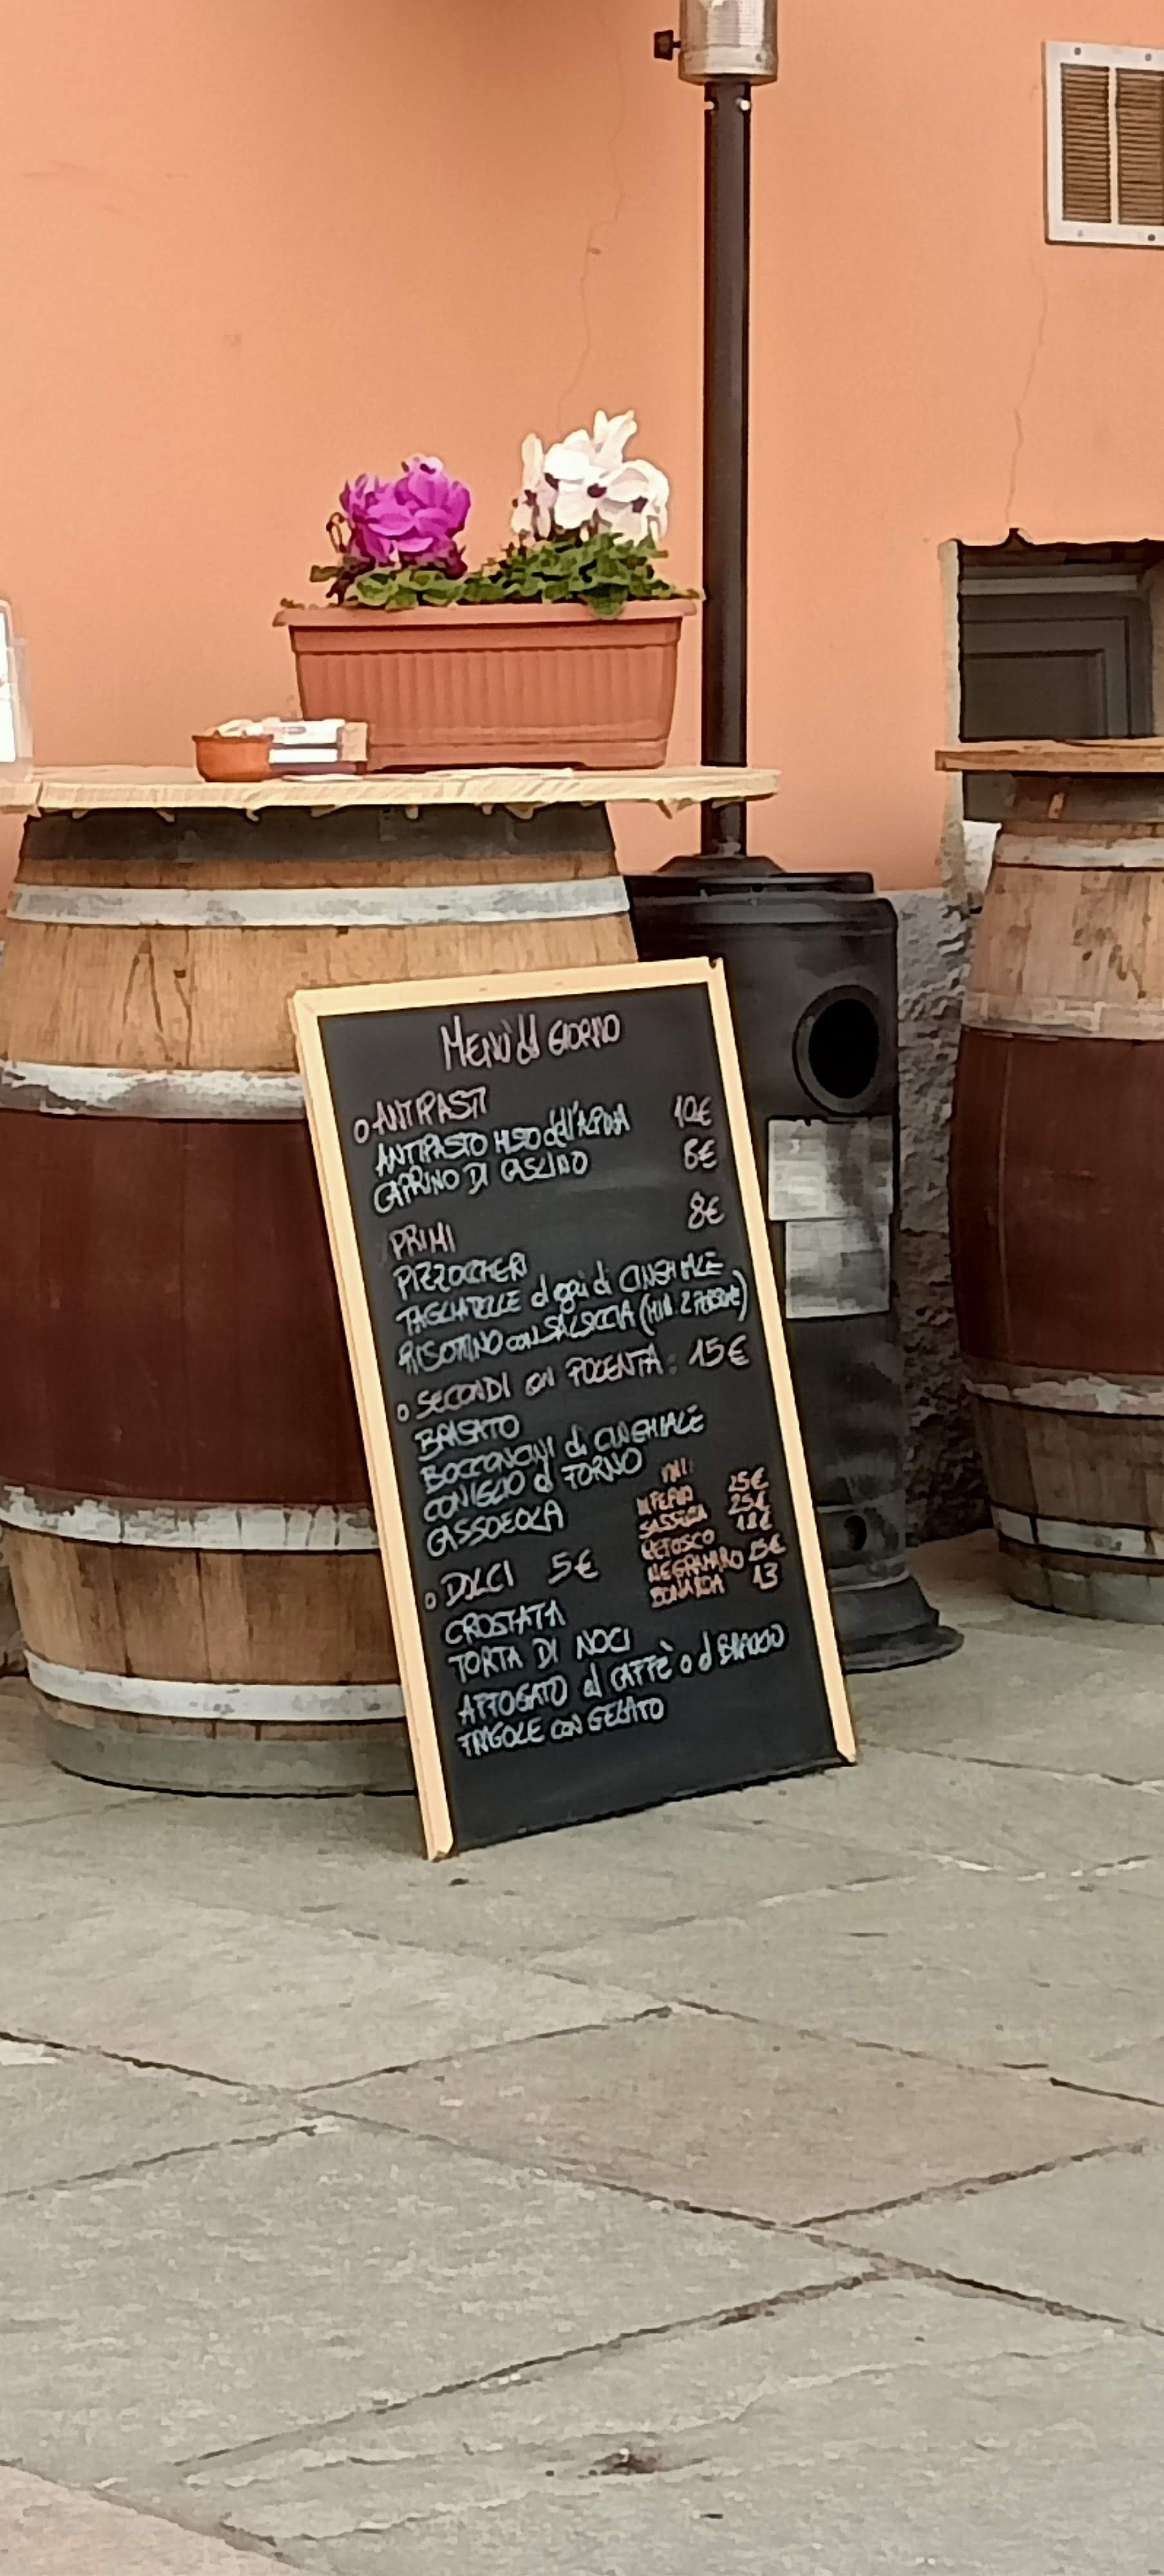 MENÙ del GIORNO
o ANTIPASTI
ANTIPASTO MISTO dell'ALPINA 10€
CAPRINO DI CASLINO 8€
PRIMI 8€
PIZZOCCHERI
TAGLIATELLE al ragù di CINGHIALE
RISOTTINO con SALSICCIA (MIN. 2 PERSONE)
o SECONDI con POLENTA: 15€
BRASATO
BOCCONCINI di CINGHIALE
CONIGLIO al FORNO
CASSOEOLA
VINI:
INFERNO 25€
SASSELLA 25€
REFOSCO 18€
NEGRAMARO 15€
BONARDA 13
o DOLCI 5€
CROSTATA
TORTA DI NOCI
AFFOGATO al CAFFÈ o al BRAULIO
FRAGOLE CON GELATO